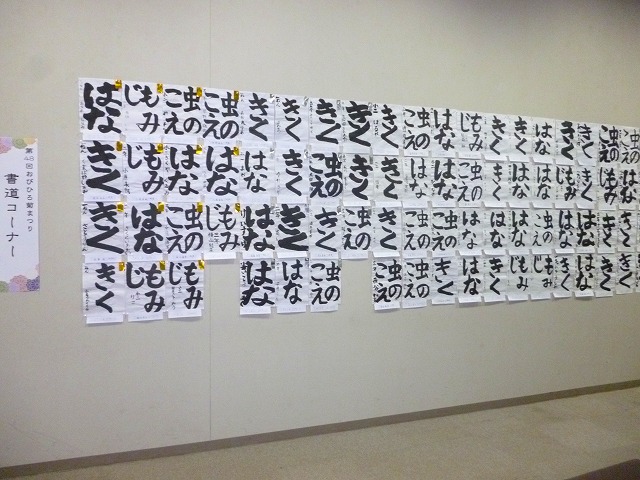 第48回おびひろ菊まつり
書道コーナー
はな
もみじ
虫のこえ
虫のこえ
きく
きく
きく
きく
きく
虫のこえ
はな
もみじ
きく
きく
はな
きく
きく
虫のこえ
虫のこえ
きく
もみじ
はな
はな
はな
きく
虫のこえ
きく
きく
はな
はな
虫のこえ
きく
はな
きく
もみじ
きく
もみじ
はな
きく
はな
虫のこえ
もみじ
はな
きく
きく
虫のこえ
きく
虫のこえ
はな
虫のこえ
はな
はな
虫のこえ
はな
はな
きく
きく
きく
もみじ
もみじ
はな
はな
虫のこえ
虫のこえ
虫のこえ
きく
はな
きく
もみじ
もみじ
きく
はな
きく
きく